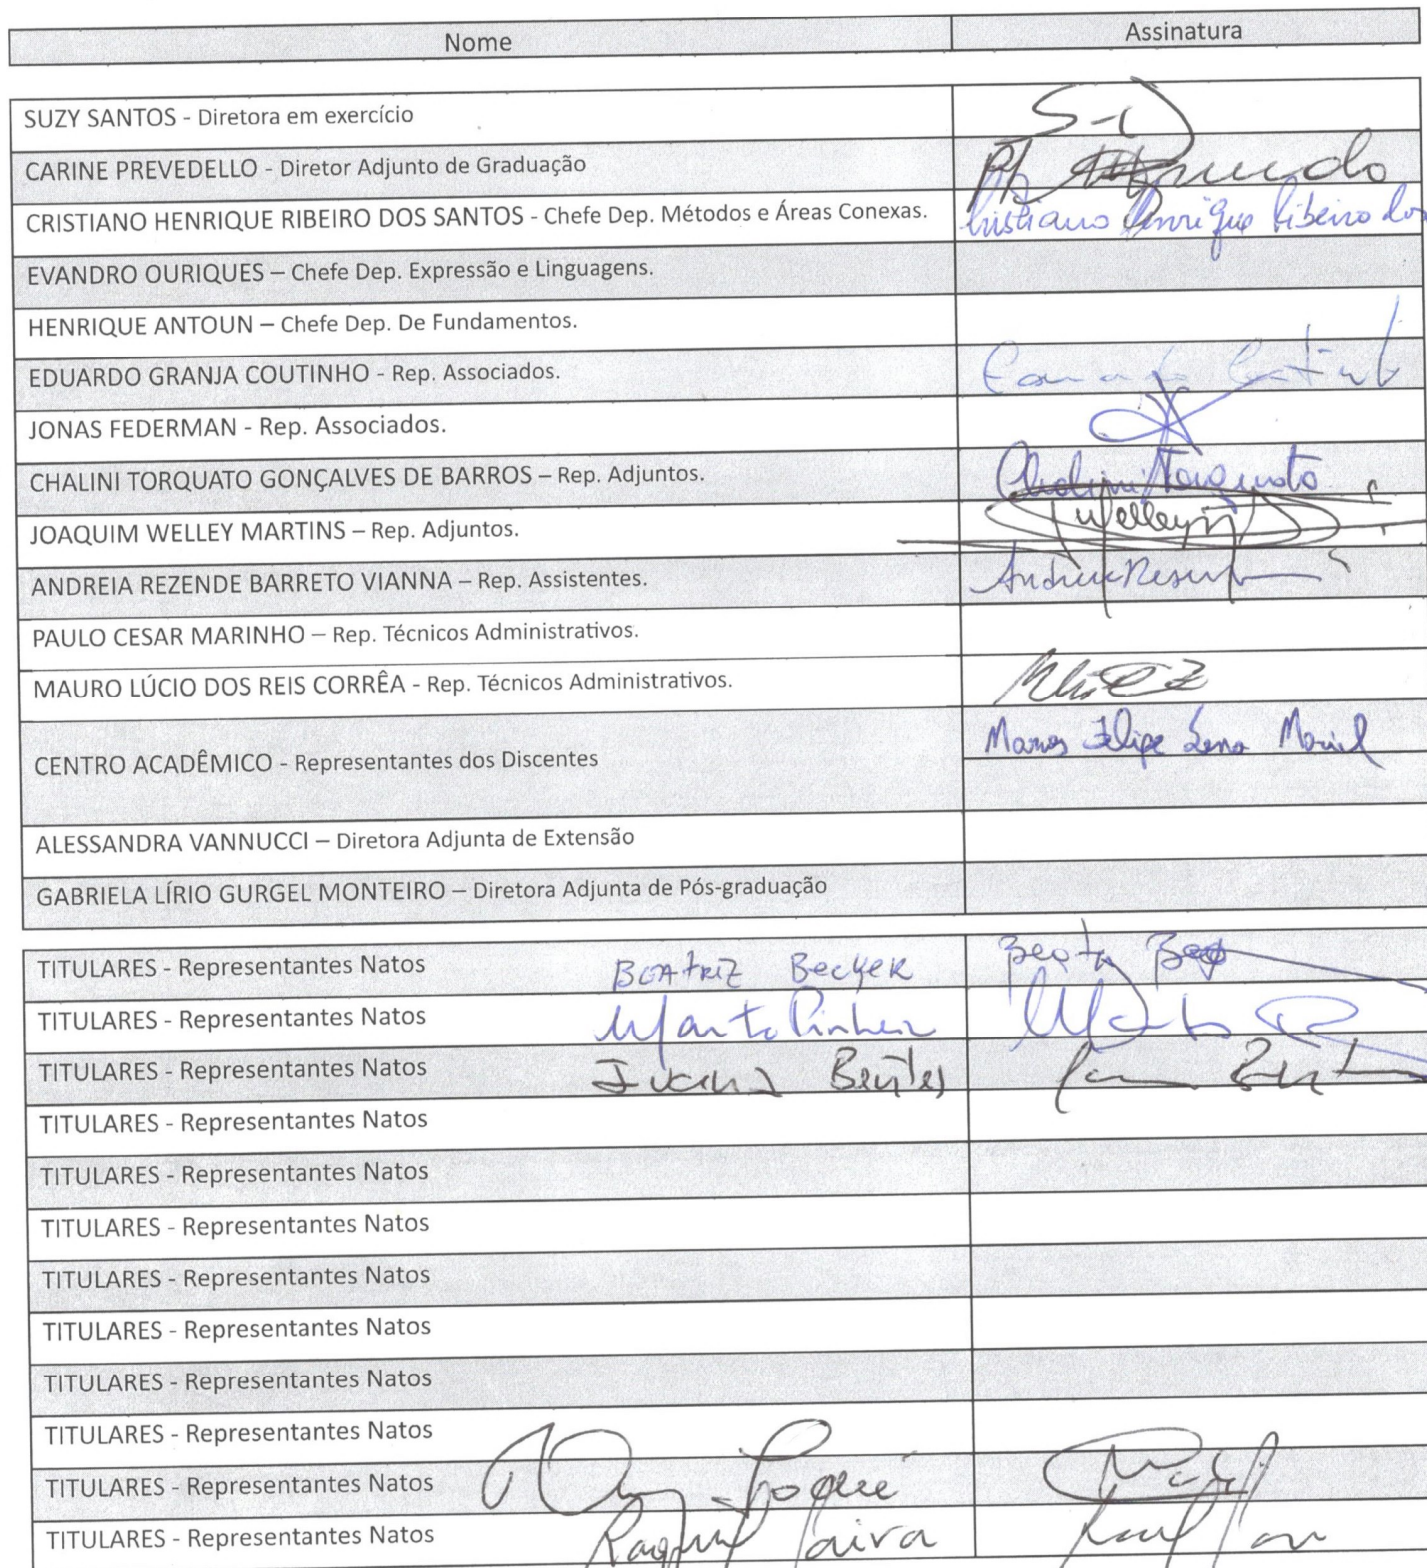 Nome Assinatura
SUZY SANTOS - Diretora em exercício
CARINE PREVEDELLO - Diretor Adjunto de Graduação
CRISTIANO HENRIQUE RIBEIRO DOS SANTOS - Chefe Dep. Métodos e Áreas Conexas. Cristiano Henrique Ribeiro dos
EVANDRO OURIQUES – Chefe Dep. Expressão e Linguagens.
HENRIQUE ANTOUN – Chefe Dep. De Fundamentos.
EDUARDO GRANJA COUTINHO - Rep. Associados.
JONAS FEDERMAN - Rep. Associados.
CHALINI TORQUATO GONÇALVES DE BARROS – Rep. Adjuntos. Chalini Torquato
JOAQUIM WELLEY MARTINS – Rep. Adjuntos. Welley
ANDREIA REZENDE BARRETO VIANNA – Rep. Assistentes.
PAULO CESAR MARINHO – Rep. Técnicos Administrativos.
MAURO LÚCIO DOS REIS CORRÊA - Rep. Técnicos Administrativos.
CENTRO ACADÊMICO - Representantes dos Discentes Felipe
ALESSANDRA VANNUCCI – Diretora Adjunta de Extensão
GABRIELA LÍRIO GURGEL MONTEIRO – Diretora Adjunta de Pós-graduação
TITULARES - Representantes Natos BEATRIZ BECKER
TITULARES - Representantes Natos Pinheiro
TITULARES - Representantes Natos Ivana Bentes
TITULARES - Representantes Natos
TITULARES - Representantes Natos
TITULARES - Representantes Natos
TITULARES - Representantes Natos
TITULARES - Representantes Natos
TITULARES - Representantes Natos
TITULARES - Representantes Natos
TITULARES - Representantes Natos
TITULARES - Representantes Natos Raquel Paiva